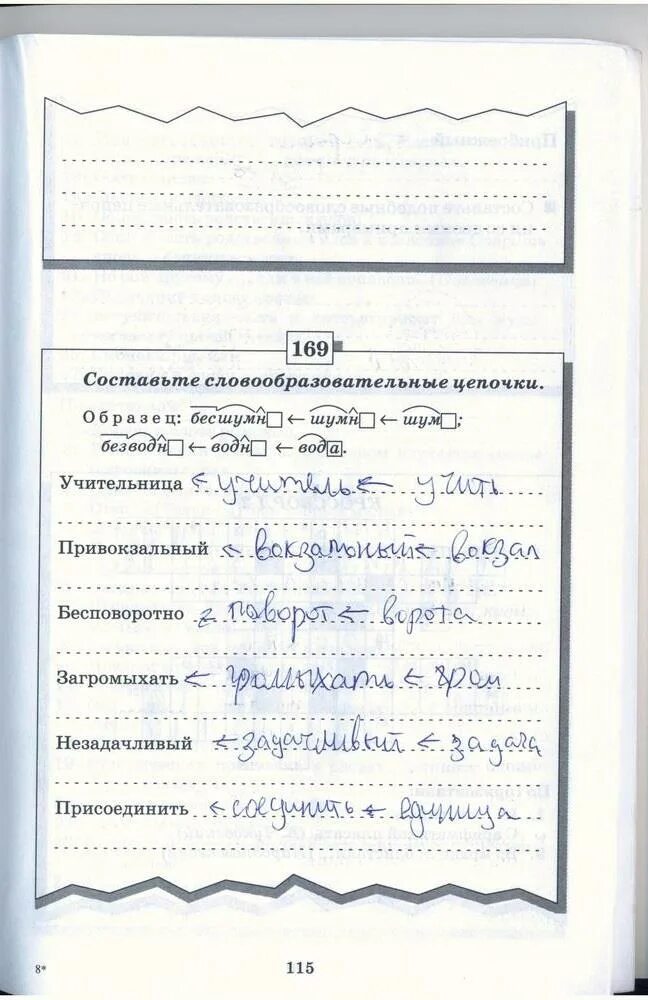 169
Составьте словообразовательные цепочки.
Образец: бесшумн ← шумн ← шум ;
безводн ← водн ← вода.
Учительница ← учитель ← учить
Привокзальный ← вокзальный ← вокзал
Бесповоротно ← поворот ← ворота
Загромыхать ← громыхать ← гром
Незадачливый ← задачливый ← задача
Присоединить ← соединить ← единица
8*
115